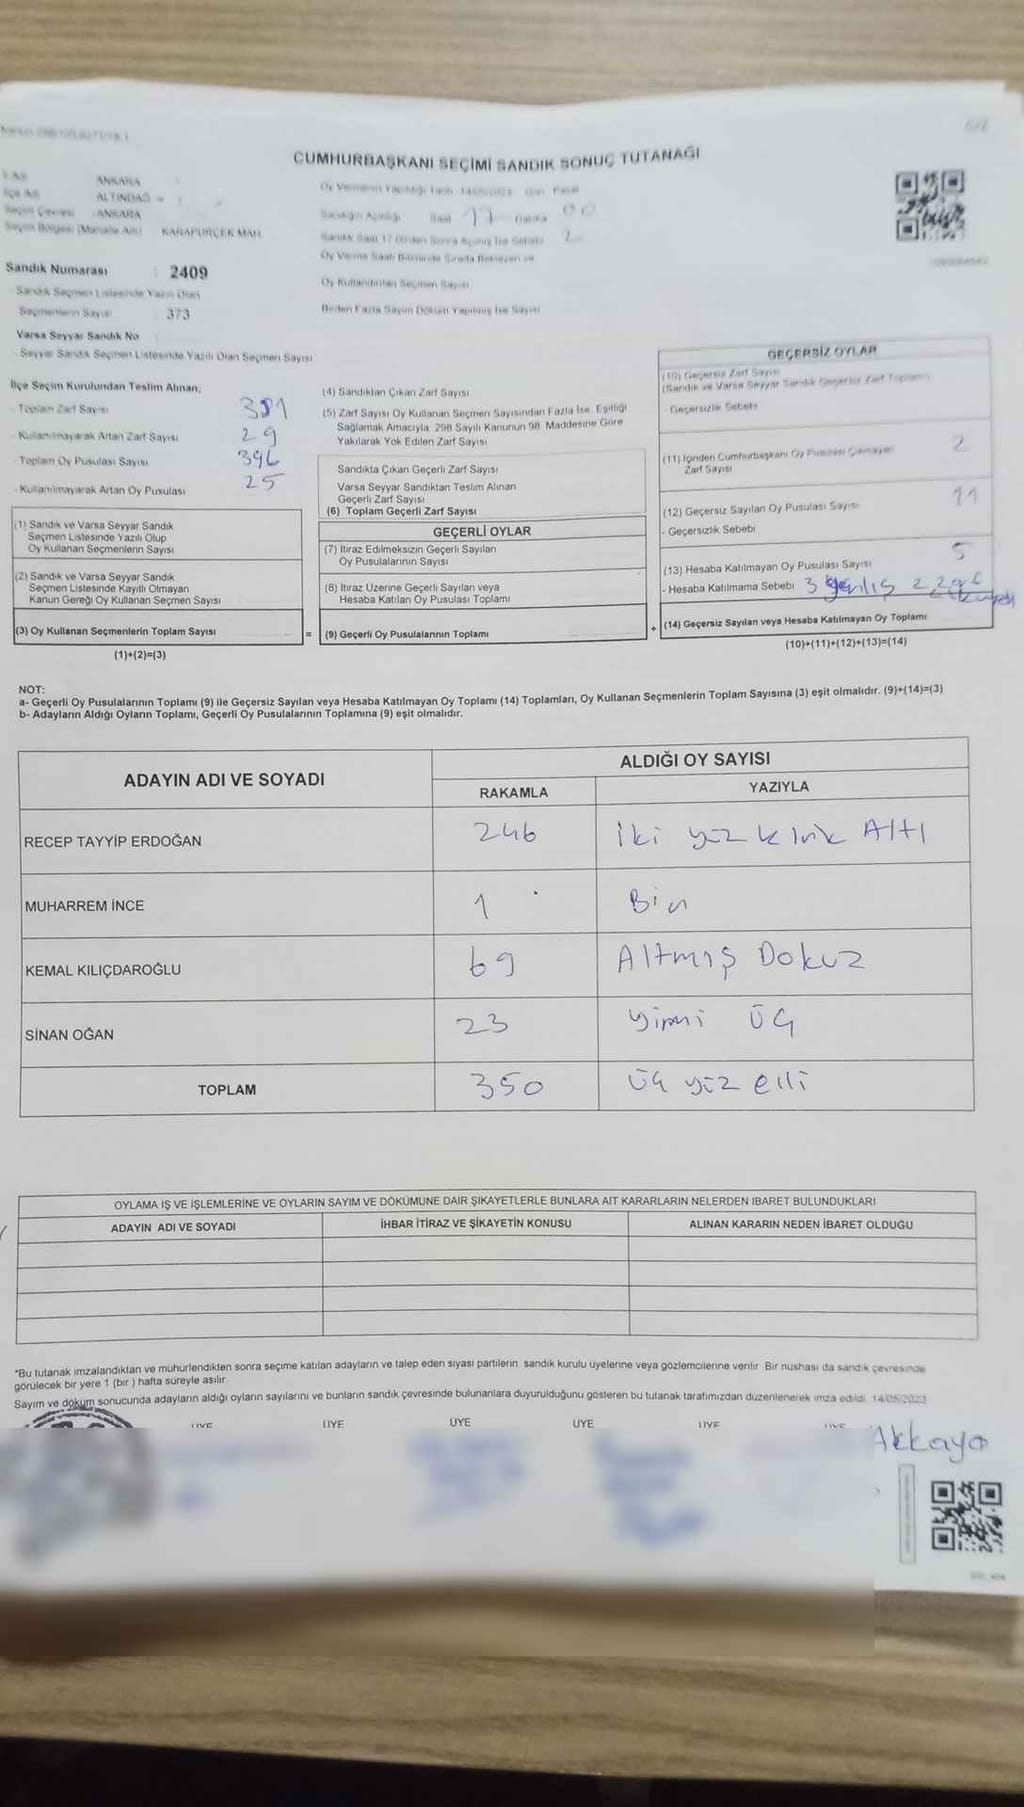 CUMHURBAŞKANI SEÇİMİ SANDIK SONUÇ TUTANAĞI
ANKARA
ALTINDAĞ
ANKARA
KARAPÜRÇEK MAH.
Sandık Numarası : 2409
Sandık Seçmen Listesinde Yazılı Olan
Seçmenlerin Sayısı 373
Varsa Seyyar Sandık No
Seyyar Sandık Seçmen Listesinde Yazılı Olan Seçmen Sayısı
Oy Kullandırılan Seçmen Sayısı
Birden Fazla Sayım Döküm Yapılmış İse Sayısı
İlçe Seçim Kurulundan Teslim Alınan;
- Toplam Zarf Sayısı 381
- Kullanılmayarak Artan Zarf Sayısı 29
- Toplam Oy Pusulası Sayısı 396
- Kullanılmayarak Artan Oy Pusulası 25
(1) Sandık ve Varsa Seyyar Sandık
Seçmen Listesinde Yazılı Olup
Oy Kullanan Seçmenlerin Sayısı
(2) Sandık ve Varsa Seyyar Sandık
Seçmen Listesinde Kayıtlı Olmayan
Kanun Gereği Oy Kullanan Seçmen Sayısı
(3) Oy Kullanan Seçmenlerin Toplam Sayısı
(1)+(2)=(3)
=
(4) Sandıktan Çıkan Zarf Sayısı
(5) Zarf Sayısı Oy Kullanan Seçmen Sayısından Fazla İse, Eşitliği
Sağlamak Amacıyla, 298 Sayılı Kanunun 98. Maddesine Göre
Yakılarak Yok Edilen Zarf Sayısı
Sandıkta Çıkan Geçerli Zarf Sayısı
Varsa Seyyar Sandıktan Teslim Alınan
Geçerli Zarf Sayısı
(6) Toplam Geçerli Zarf Sayısı
GEÇERLİ OYLAR
(7) İtiraz Edilmeksizin Geçerli Sayılan
Oy Pusulalarının Sayısı
(8) İtiraz Üzerine Geçerli Sayılan veya
Hesaba Katılan Oy Pusulası Toplamı
(9) Geçerli Oy Pusulalarının Toplamı
+
GEÇERSİZ OYLAR
(10) Geçersiz Zarf Sayısı
(Sandık ve Varsa Seyyar Sandık Geçersiz Zarf Toplamı)
- Geçersizlik Sebebi
(11) İçinden Cumhurbaşkanı Oy Pusulası Çıkmayan 2
Zarf Sayısı
(12) Geçersiz Sayılan Oy Pusulası Sayısı 11
- Geçersizlik Sebebi
(13) Hesaba Katılmayan Oy Pusulası Sayısı 5
- Hesaba Katılmama Sebebi 3
(14) Geçersiz Sayılan veya Hesaba Katılmayan Oy Toplamı
(10)+(11)+(12)+(13)=(14)
NOT:
a- Geçerli Oy Pusulalarının Toplamı (9) ile Geçersiz Sayılan veya Hesaba Katılmayan Oy Toplamı (14) Toplamları, Oy Kullanan Seçmenlerin Toplam Sayısına (3) eşit olmalıdır. (9)+(14)=(3)
b- Adayların Aldığı Oyların Toplamı, Geçerli Oy Pusulalarının Toplamına (9) eşit olmalıdır.
ADAYIN ADI VE SOYADI
ALDIĞI OY SAYISI
RAKAMLA YAZIYLA
RECEP TAYYİP ERDOĞAN 246 İki yüz kırk Altı
MUHARREM İNCE 1 Bir
KEMAL KILIÇDAROĞLU 69 Altmış Dokuz
SİNAN OĞAN 23 yirmi Üç
TOPLAM 350 Üç yüz elli
OYLAMA İŞ VE İŞLEMLERİNE VE OYLARIN SAYIM VE DÖKÜMÜNE DAİR ŞİKAYETLERLE BUNLARA AİT KARARLARIN NELERDEN İBARET BULUNDUKLARI
ADAYIN ADI VE SOYADI İHBAR İTİRAZ VE ŞİKAYETİN KONUSU ALINAN KARARIN NEDEN İBARET OLDUĞU
*Bu tutanak imzalandıktan ve mühürlendikten sonra seçime katılan adayların ve talep eden siyasi partilerin sandık kurulu üyelerine veya gözlemcilerine verilir. Bir nüshası da sandık çevresinde
görülecek bir yere 1 (bir) hafta süreyle asılır.
Sayım ve döküm sonucunda adayların aldığı oyların sayılarını ve bunların sandık çevresinde bulunanlara duyurulduğunu gösteren bu tutanak tarafımızdan düzenlenerek imza edildi. 14/05/2023
ÜYE ÜYE ÜYE ÜYE ÜYE
Akkaya